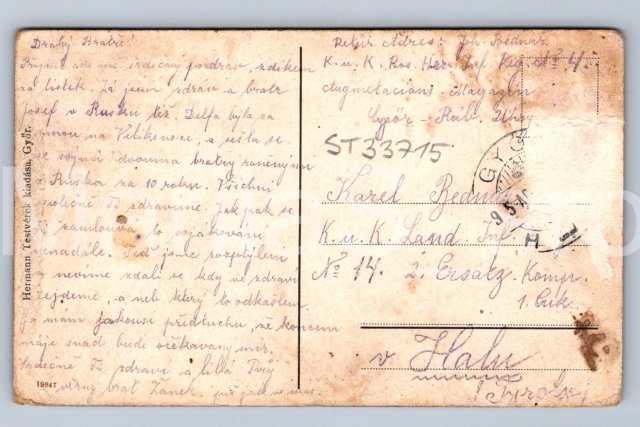 Drahý Bratře!
Přijmi ode mne srdečný pozdrav, z díkem
za lístek. Já jsem zdráv a bratr
Josef v Rusku též. Delfa byla za
mnou na Velikonoce, a sešla se
se svými dvouma bratry raněnými
z Ruska za 10 roku. Všichni
společně Tě zdravíme. Jak pak se
Ti zamlouvá to vojákování
nenadále. Teď jsme rozptýlení
a nevíme zdali se kdy ve zdraví
sejdeme, a neb který to odkašlem.
Já mám jakousi předtuchu, že koncem
máje snad bude očekávaný mír.
Srdečně Tě zdraví a líbá Tvůj
věrný brat Janek. piš jak se máš.
Hermann Testvérek kiadása, Győr.
19847
Retur Adres: Joh. Bednař
K. u. K. Res. Inf. № 4.
Augmetacions-Magazin
Győr - Ráb. Uhry
ST33715
GY
9 5
H
Karel
K. u. K. Land. Inf.
№ 14. 2. Ersatz-Komp.
1. Cuk.
v Halu
(Tyrolsko)